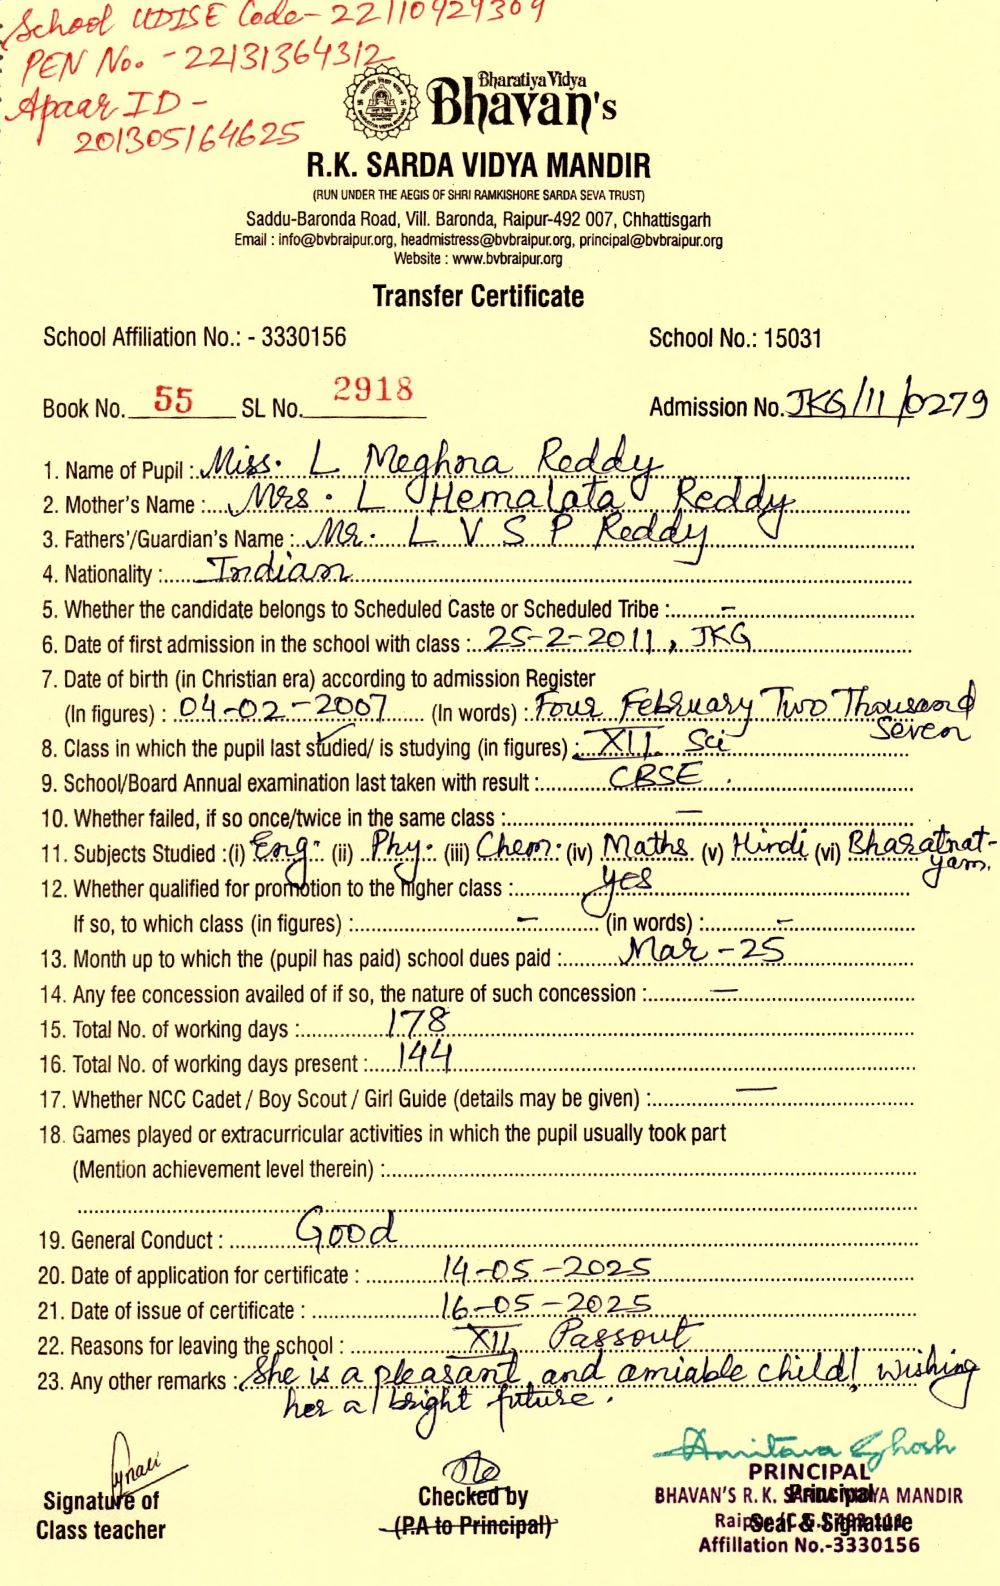 School UDISE Code- 22110429309
PEN No. - 22131364312
Apaar ID -
201305164625
Bharatiya Vidya
Bhavan's
R.K. SARDA VIDYA MANDIR
(RUN UNDER THE AEGIS OF SHRI RAMKISHORE SARDA SEVA TRUST)
Saddu-Baronda Road, Vill. Baronda, Raipur-492 007, Chhattisgarh
Email : info@bvbraipur.org, headmistress@bvbraipur.org, principal@bvbraipur.org
Website : www.bvbraipur.org
Transfer Certificate
School Affiliation No.: - 3330156 School No.: 15031
Book No. 55 SL No. 2918 Admission No. JKG/11/0279
1. Name of Pupil : Miss. L Meghna Reddy
2. Mother's Name : Mrs. L Hemalata Reddy
3. Fathers'/Guardian's Name : Mr. L V S P Reddy
4. Nationality : Indian
5. Whether the candidate belongs to Scheduled Caste or Scheduled Tribe : -
6. Date of first admission in the school with class : 25-2-2011, JKG
7. Date of birth (in Christian era) according to admission Register
(In figures) : 04-02-2007 (In words) : Four February Two Thousand
Seven
8. Class in which the pupil last studied/ is studying (in figures) : XII Sci
9. School/Board Annual examination last taken with result : CBSE.
10. Whether failed, if so once/twice in the same class : —
11. Subjects Studied :(i) Eng. (ii) Phy. (iii) Chem. (iv) Maths (v) Hindi (vi) Bharatnat-
yam.
12. Whether qualified for promotion to the higher class : yes
If so, to which class (in figures) : - (in words) : -
13. Month up to which the (pupil has paid) school dues paid : Mar-25
14. Any fee concession availed of if so, the nature of such concession : —
15. Total No. of working days : 178
16. Total No. of working days present : 144
17. Whether NCC Cadet / Boy Scout / Girl Guide (details may be given) : —
18. Games played or extracurricular activities in which the pupil usually took part
(Mention achievement level therein) :
19. General Conduct : Good
20. Date of application for certificate : 14-05-2025
21. Date of issue of certificate : 16-05-2025
22. Reasons for leaving the school : XII Passout
23. Any other remarks : She is a pleasant and amiable child! wishing
her a bright future.
Amitava Ghosh
PRINCIPAL
Signature of Checked by BHAVAN'S R. K. SARDA VIDYA MANDIR
Principal
Class teacher (P.A to Principal) Seal & Signature
Affillation No.-3330156